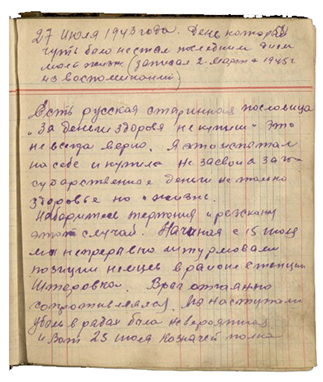 27 Июля 1943 года. День который
чуть было не стал последним днем
моей жизни (записал 2 марта 1945 г
из воспоминаний)
Есть русская старинная пословица
"За деньги здоровья не купишь" Это
не всегда верно. Я это испытал
на себе и купил не за свои а за го-
сударственное деньги не только
здоровье но и жизнь.
Наберитесь терпения и расскажу
этот случай. Начиная с 15 июля
мы непрерывно штурмовали
позиции немцев в районе станции
Штеровка. Враг отчаянно
сопротивлялся. Мы наступали
убыль в рядах была невероятная
и вот 25 июля казначей полка